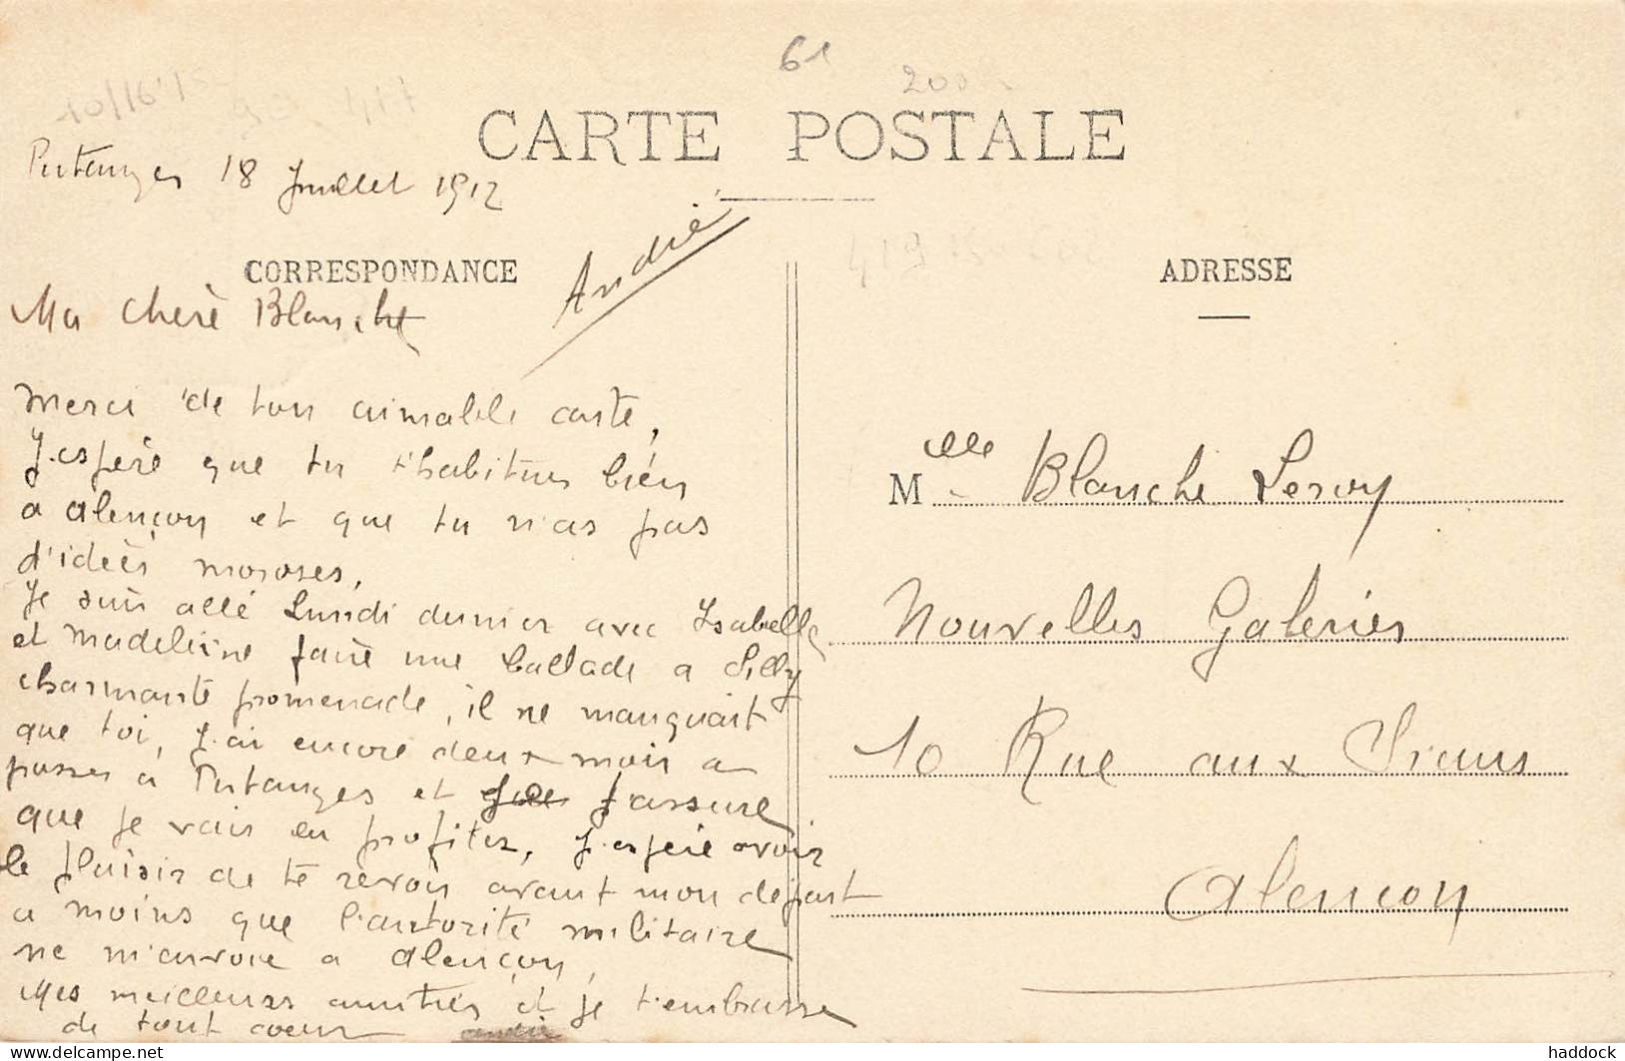 61
200
CARTE POSTALE
Putanges 18 Juillet 1912
André
CORRESPONDANCE
Ma Cherè Blanche
Merci de ton aimable carte,
J'espère que tu t'habitues bien
a alençon et que tu n'as pas
d'idées moroses,
Je suis allé Lundi dernier avec Isabelle
et Madeleine faire une ballade a Silly
charmante promenade, il ne manquait
que toi, J'ai encore deux mois a
passer à Putanges et t'assure
que je vais en profiter, J'espère avoir
le plaisir de te revoir avant mon départ
a moins que l'autorité militaire
ne m'envoie a alençon,
Mes meilleurs amitiés et je t'embrasse
de tout coeur andré
ADRESSE
Melle Blanche Leroy
Nouvelles Galeries
10 Rue aux Sieurs
Alencon
haddock